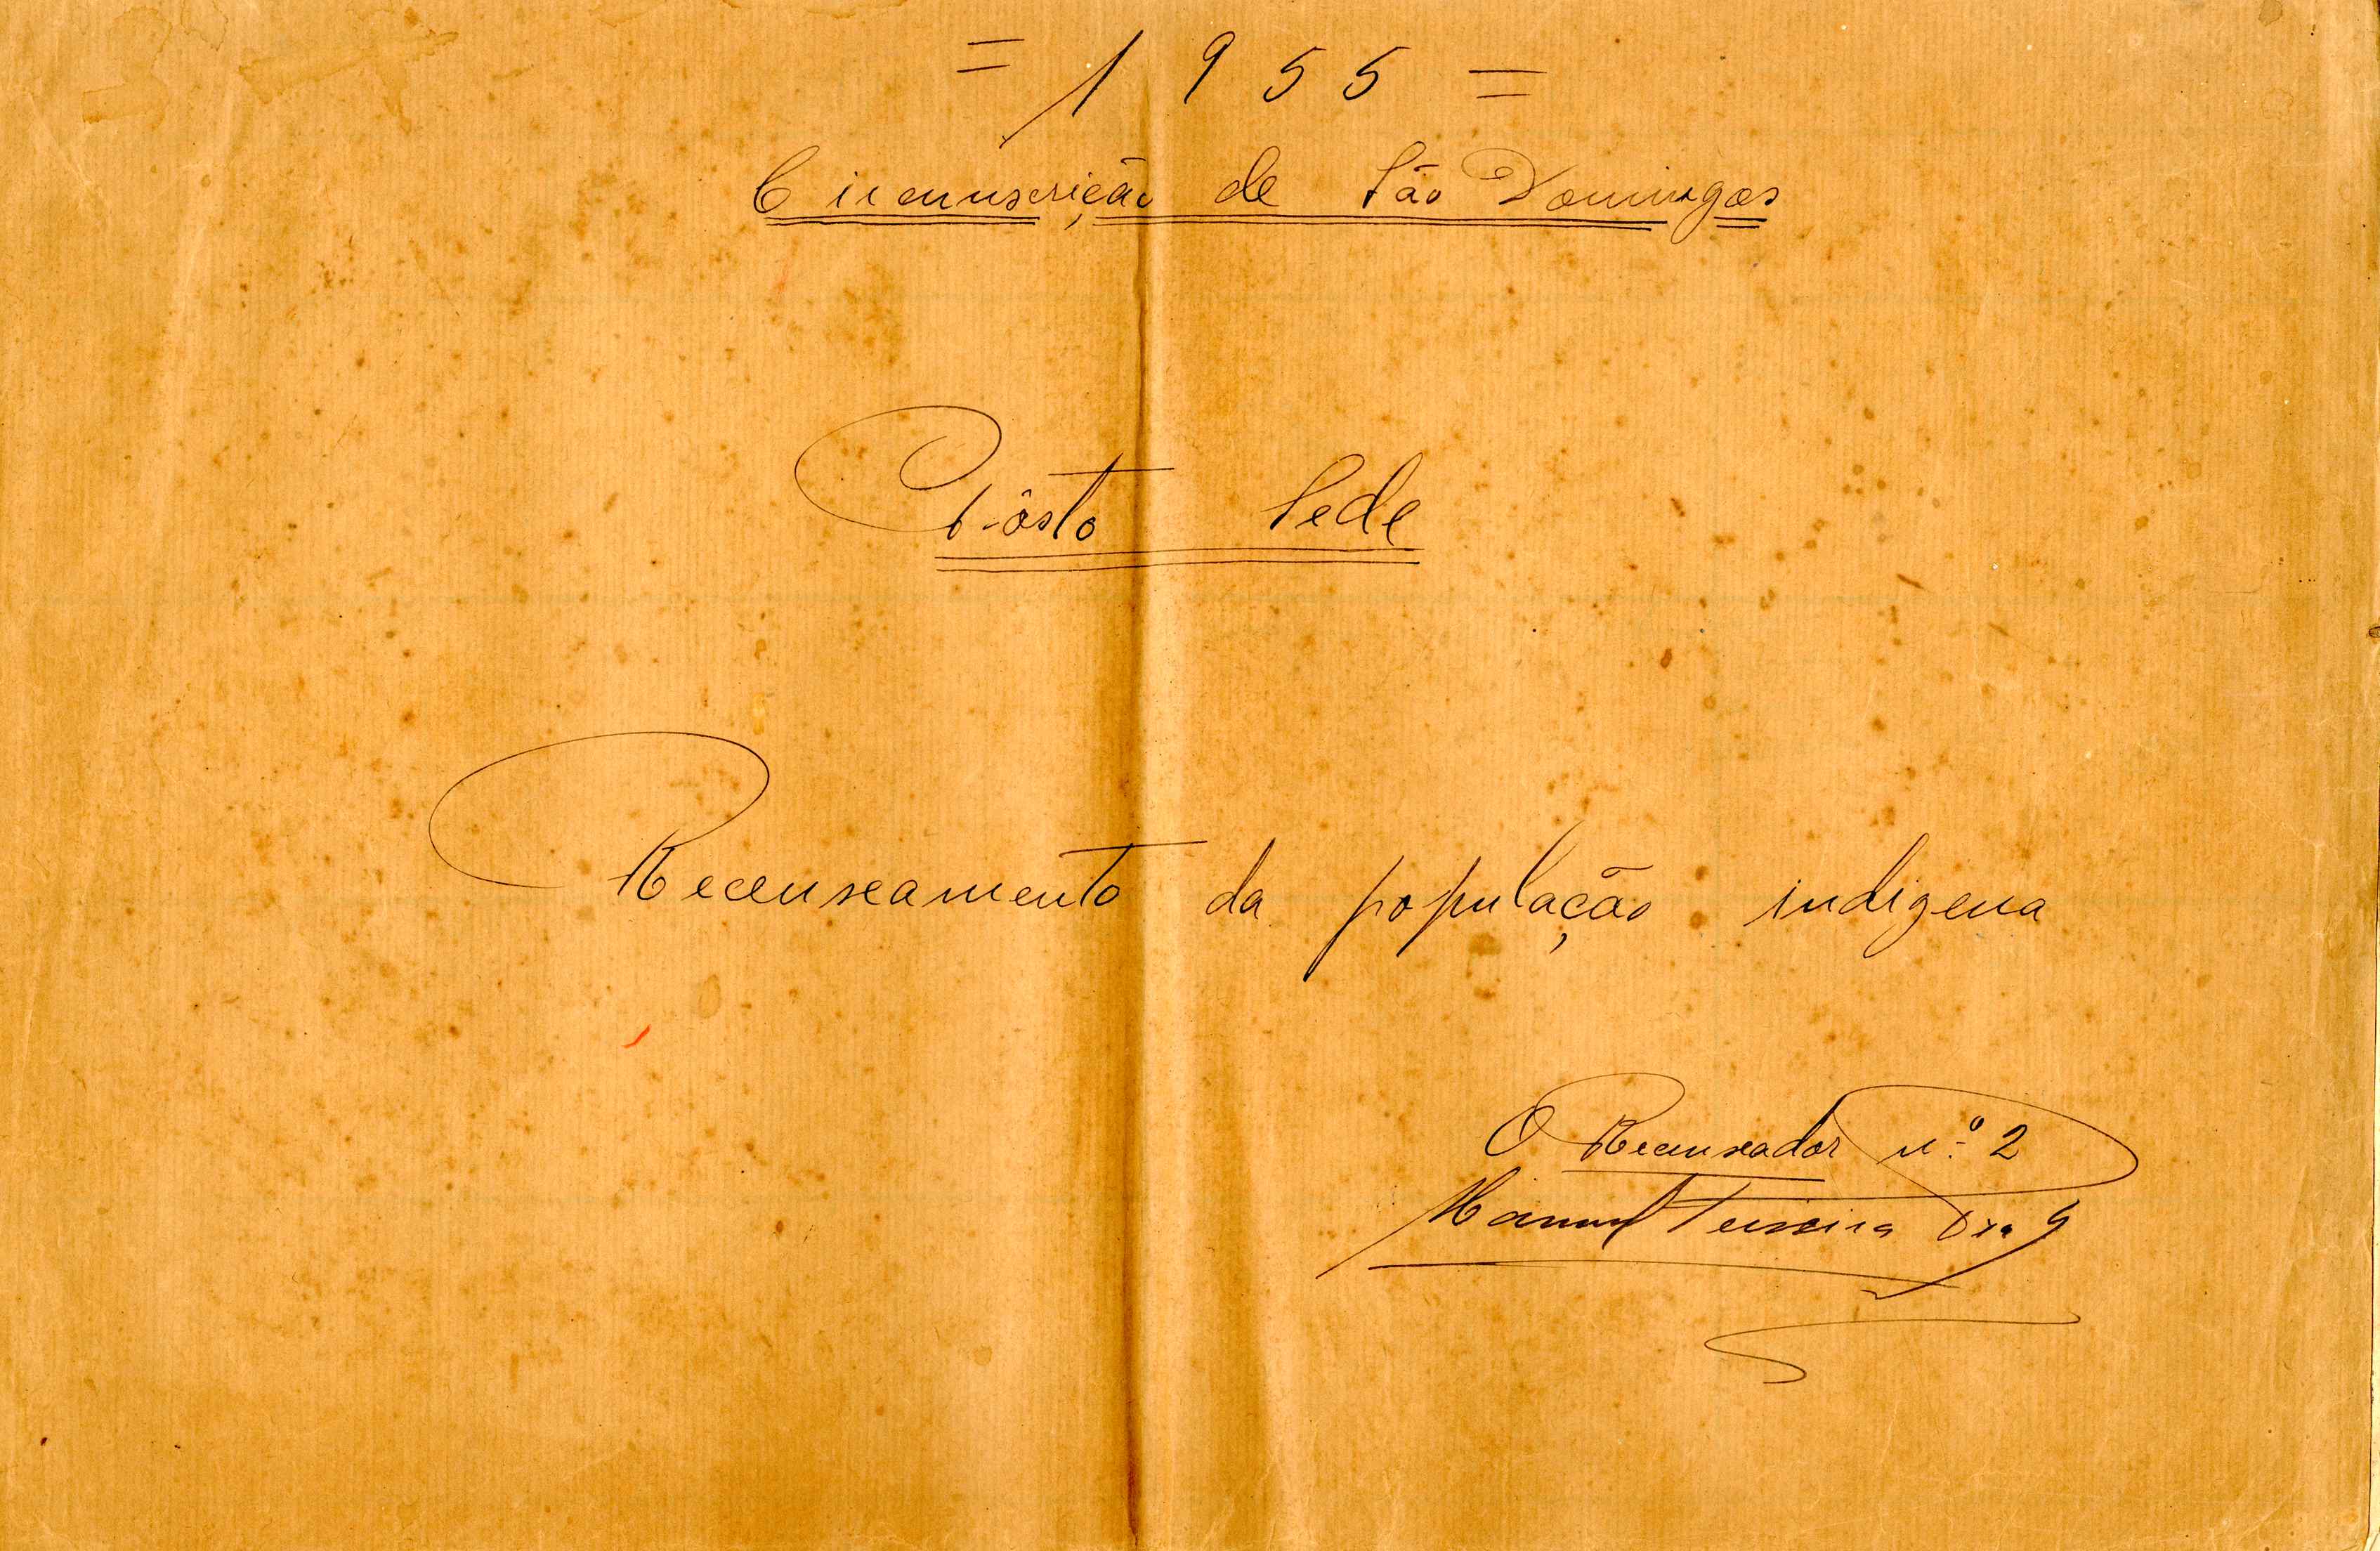 = 1955 =
Circunscrição de São Domingos
Pôsto Sede
Recenseamento da população indigena
O Recenseador nº 2
Manuel Teixeira